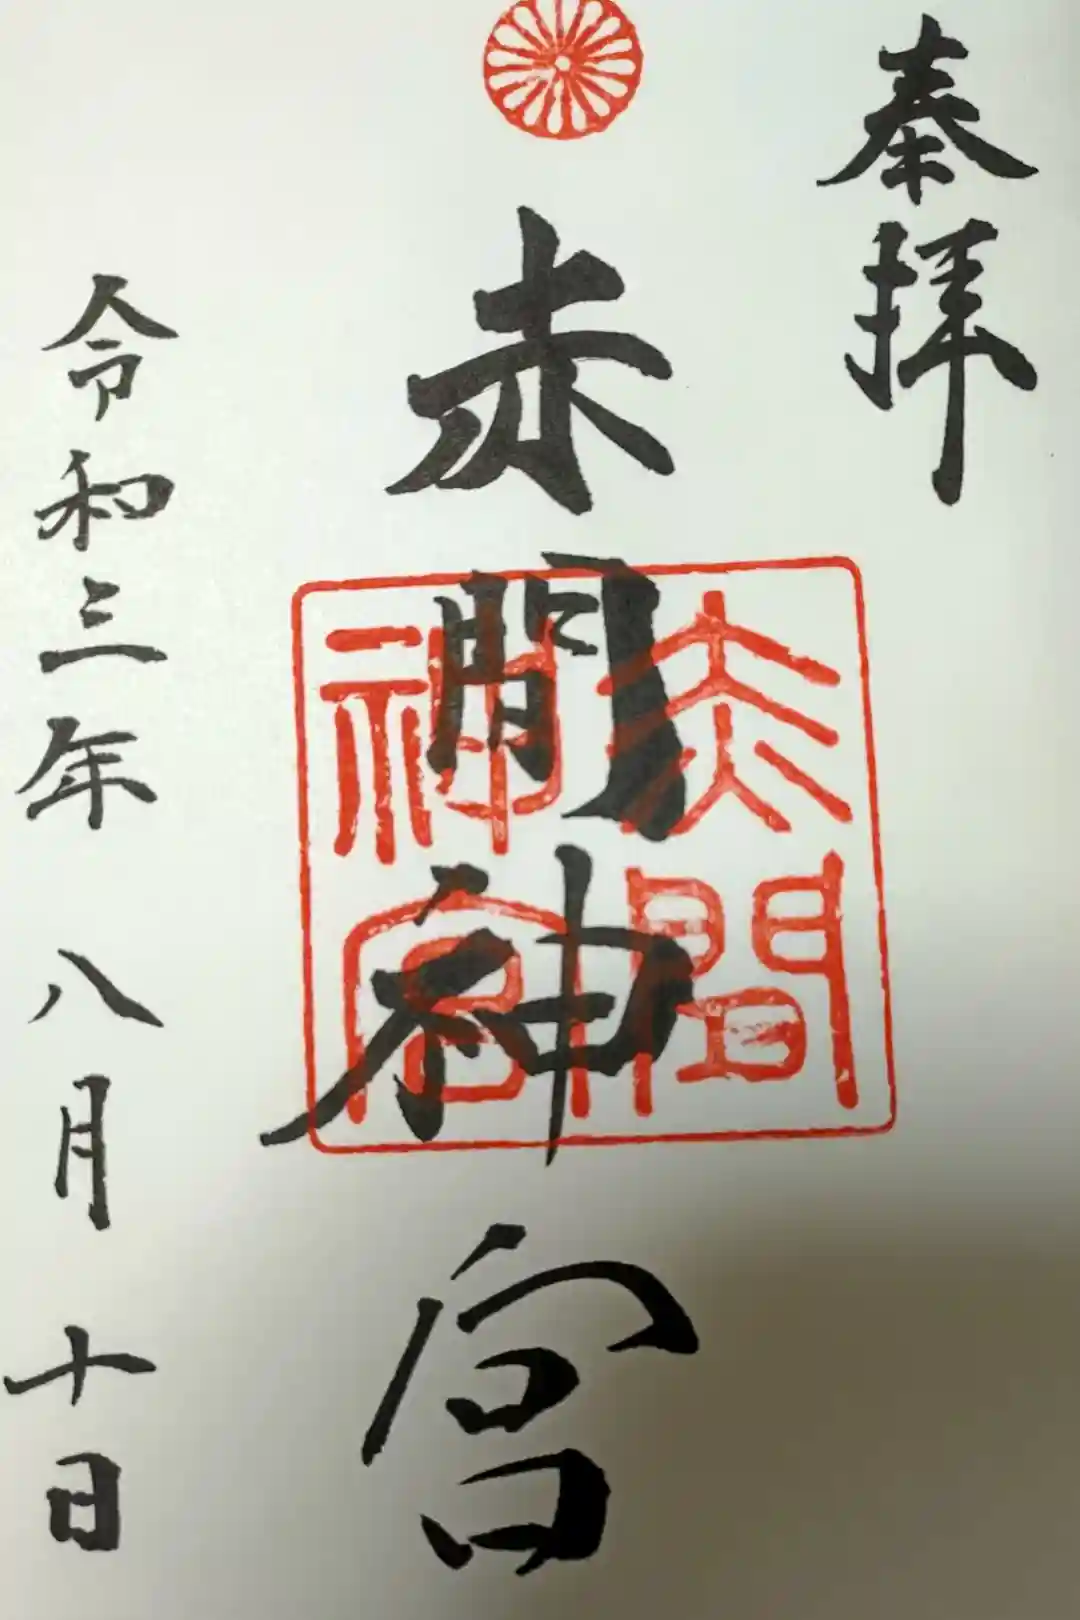 奉拝
赤間神宮
赤間神宮
令和三年八月十日